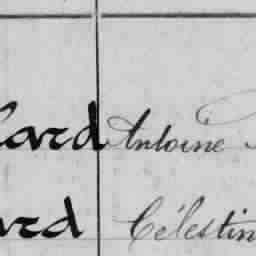 lard Antoine
ard Célestin